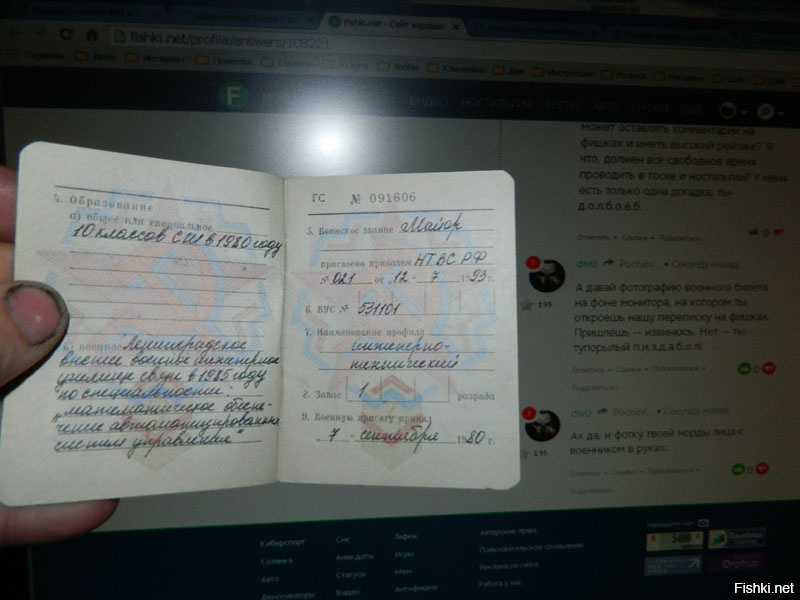 Fishki.net - Сайт хорошег
fishki.net/profile/answers/108321
Сервисы Авто Интернет Приколы Соцсети Услуги Хобби Ювелирка Дом Инструкции Музыка Магазины Софт Сайт
F ВИДЕО НОСТАЛЬГИЯ ТЕСТЫ АВТО ГИФКИ ЕЩЕ
может оставлять комментарии на
фишках и иметь высокий рейтинг? Я
что, должен всё свободное время
проводить в тоске и ностальгии? У меня
есть только одна догадка, ты-
д.о.л.б.о.ё.б.
Ответить Ссылка Поделиться 0
4. Образование
а) общее или специальное
10 классов СШ в 1980 году
б) военное Ленинградское
высшее военное инженерное
училище связи в 1985 году
по специальности:
"математическое обеспе-
чение автоматизированных
систем управления"
ГС № 091606
5. Воинское звание Майор
присвоено приказом НТВС РФ
№ 021 от 12 - 7 1993 г.
6. ВУС № 531101
7. Наименование профиля
инженерно-
технический
8. Запас 1 разряда
9. Военную присягу принял
7 - сентября 1980 г.
div0 Pochini... • Секунду назад
195
А давай фотографию военного билета
на фоне монитора, на котром ты
откроешь нашу переписку на фишках.
Пришлёшь -- извинюсь. Нет -- ты
тупорылый п.и.з.д.а.б.о.л!
Ответить Ссылка Пожаловаться 0
Поделиться
div0 Pochini... • Секунду назад
195
Ах да, и фотку твоей морды лица с
военником в руках.
Ответить Ссылка Пожаловаться 0
Поделиться
Киберспорт Секс Бифки Авторские права
Солянка Анекдоты Игры Пользовательское соглашение
Авто Статусы Мем Реклама на сайте
Демотиваторы Видео Антифишки Работа у нас
Напишите нам
5406
Rambler
Orphus
Fishki.net